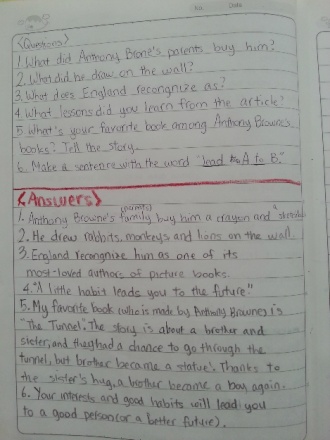 No. Date
<Questions>
1. What did Anthony Brone's parents buy him?
2. What did he draw on the wall?
3. What does England recongnize as?
4. What lessons did you learn from the article?
5. What's your favorite book among Anthony Browne's
books? Tell the story.
6. Make a sentence with the word "lead to A to B."
<Answers>
(parents)
1. Anthony Browne's family buy him a crayon and a
2. He drew rabbits, monkeys and lions on the wall.
3. England recongnize him as one of its
most-loved authors of picture books.
4. "A little habit leads you to the future."
5. My favorite book (who is made by Anthony Browne) is
"The Tunnel". The story is about a brother and
sister, and they had a chance to go through the
tunnel, but brother became a statue. Thanks to
the sister's hug, a brother became a boy again.
6. Your interests and good habits will lead you
to a good person (or a better future).